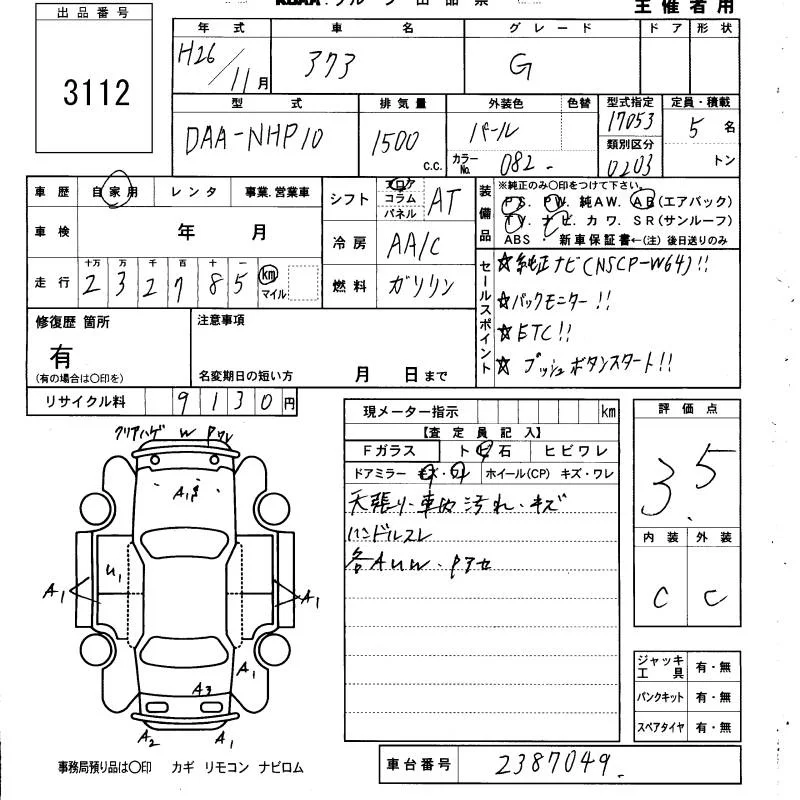 出品番号
3112
主催者用
年式 車名 グレード ドア 形状
H26/11月 373 G
型式 排気量 外装色 色替 型式指定 定員・積載
DAA-NHP10 1500 c.c. パール 17053 5名
カラーNo. 082 類別区分 0203 トン
車歴 自家用 レンタ 事業.営業車
シフト フロア コラム パネル AT
車検 年 月
冷房 AA/C
走行 十万 万 千 百 十 一
232785 km マイル
燃料 ガソリン
装備品
※純正のみ○印をつけて下さい。
PS. PW. 純AW. AB(エアバック)
TV. ナビ. カワ. SR(サンルーフ)
ABS 新車保証書←(注) 後日送りのみ
セールスポイント
☆純正ナビ(NSCP-W64)!!
☆バックモニター!!
☆ETC!!
☆プッシュボタンスタート!!
修復歴 箇所
有
(有の場合は○印を)
注意事項
名変期日の短い方 月 日まで
リサイクル料 9130円
現メーター指示 km
【査定員記入】
Fガラス トビ石 ヒビワレ
ドアミラー キズ・ワレ ホイール(CP) キズ・ワレ
天張り・車内汚れ・キズ
ハンドルスレ
各AUW・Pアセ
評価点
3.5
内装 外装
C C
クリアハゲ W Pワレ
A1
U1
A1
A1
A1
A3
A2
A1
ジャッキ工具 有・無
パンクキット 有・無
スペアタイヤ 有・無
事務局預り品は○印 カギ リモコン ナビロム
車台番号 2387049